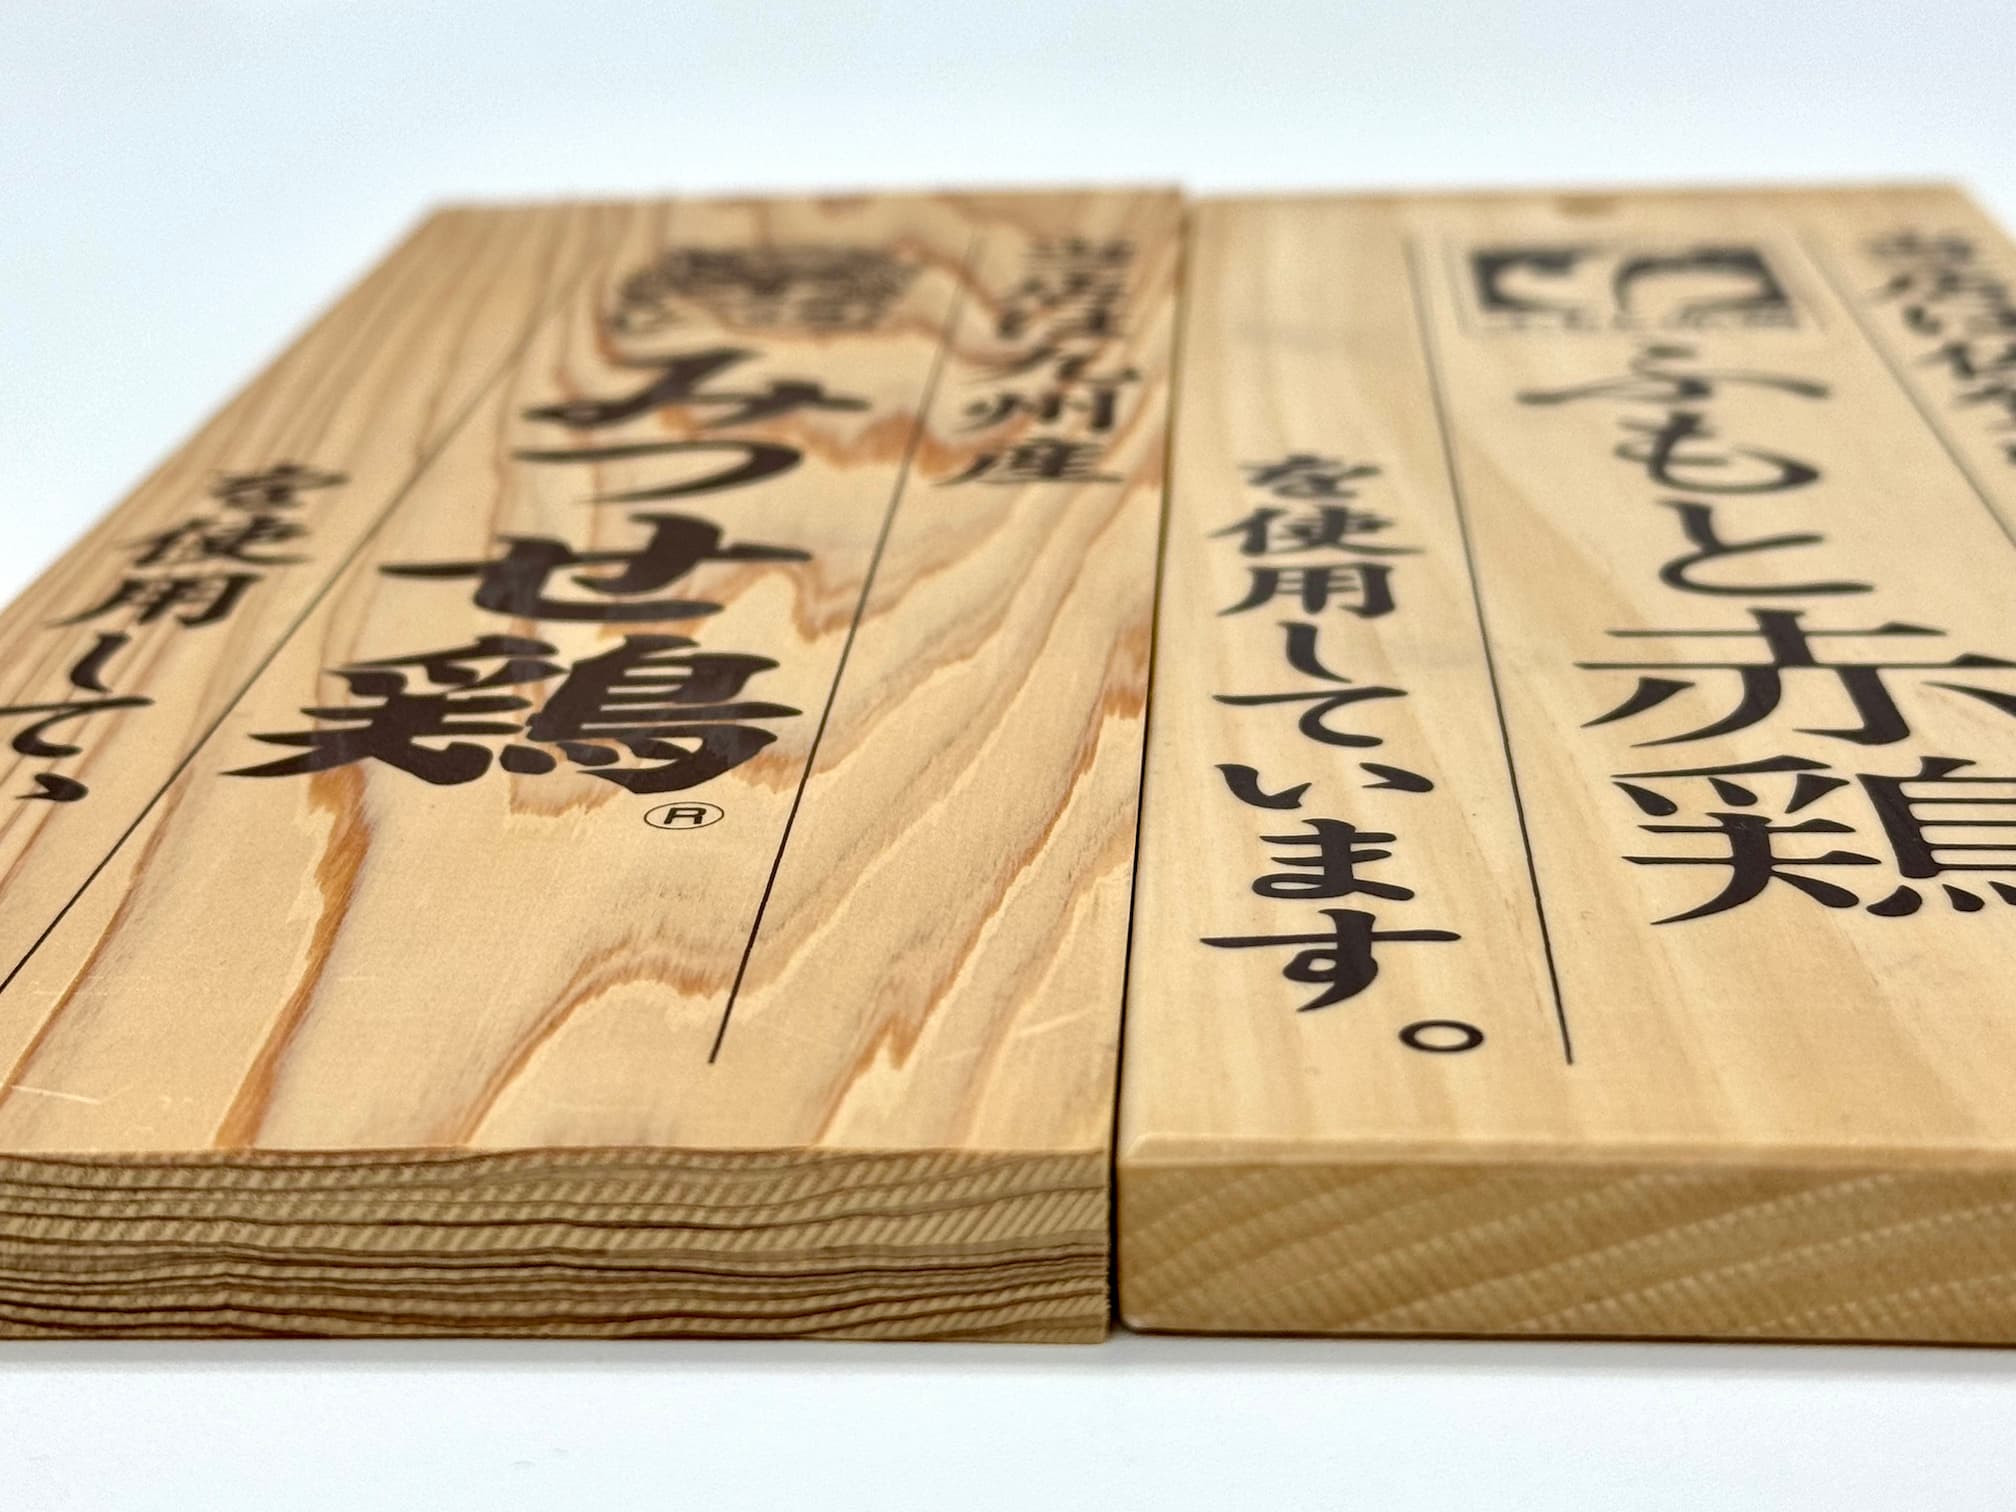 当店は九州産
みつせ鶏®
を使用して
当店は
ふもと赤鶏
を使用しています。